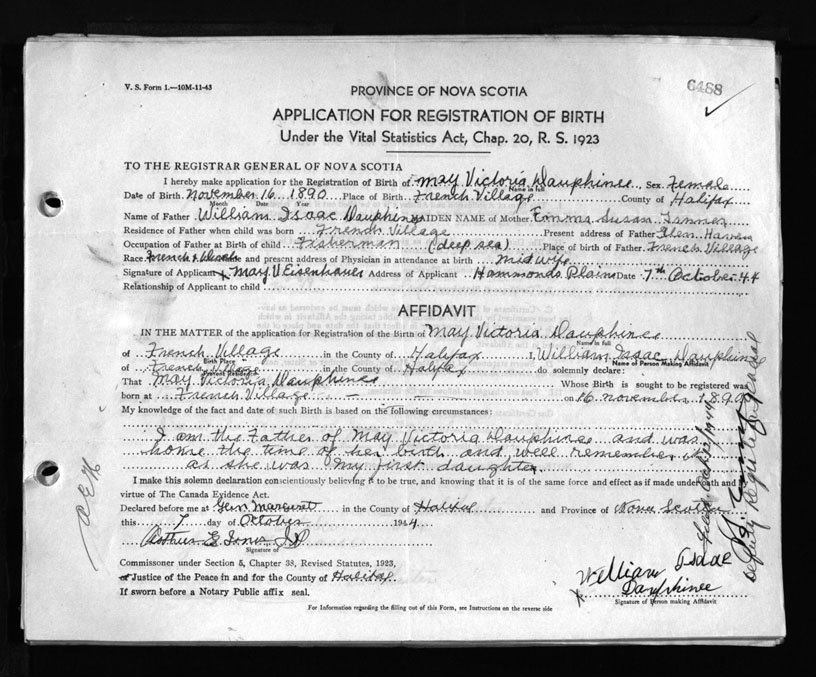 V. S. Form 1.—10M-11-43
6488
PROVINCE OF NOVA SCOTIA
APPLICATION FOR REGISTRATION OF BIRTH
Under the Vital Statistics Act, Chap. 20, R. S. 1923
TO THE REGISTRAR GENERAL OF NOVA SCOTIA
I hereby make application for the Registration of Birth of May Victoria Dauphinee Sex Female
Name in full
Date of Birth November 16 1890 Place of Birth French Village County of Halifax
Month Date Year
Name of Father William Isaac Dauphinee MAIDEN NAME of Mother Emma Susan
Residence of Father when child was born French Village Present address of Father Glen Haven
Occupation of Father at Birth of child Fisherman (deep sea) Place of birth of Father French Village
Race French & and present address of Physician in attendance at birth midwife
Signature of Applicant x May V Eisenhauer Address of Applicant Hammonds Plains Date 7th October 44
Relationship of Applicant to child
AFFIDAVIT
IN THE MATTER of the application for Registration of the Birth of May Victoria Dauphinee
Name in full
of French Village in the County of Halifax I, William Isaac Dauphinee
Birth Place
Name of Person Making Affidavit
of French Village in the County of Halifax do solemnly declare:
Present Residence
That May Victoria Dauphinee Whose Birth is sought to be registered was
born at French Village — — — on 16 november 1890
My knowledge of the fact and date of such Birth is based on the following circumstances:
I am the Father of May Victoria Dauphinee and was
home the time of her birth and well remember it
as she was my first daughter
I make this solemn declaration conscientiously believing it to be true, and knowing that it is of the same force and effect as if made under oath and
virtue of The Canada Evidence Act.
Declared before me at Glen Margaret in the County of Halifax and Province of Nova Scotia
this 7 day of October 1944
Arthur E
Signature of
Commissioner under Section 5, Chapter 38, Revised Statutes, 1923,
or Justice of the Peace in and for the County of Halifax
If sworn before a Notary Public affix seal.
x William Isaac
Dauphinee
Signature of Person making Affidavit
For Information regarding the filling out of this Form, see Instructions on the reverse side
Deputy Registrar General